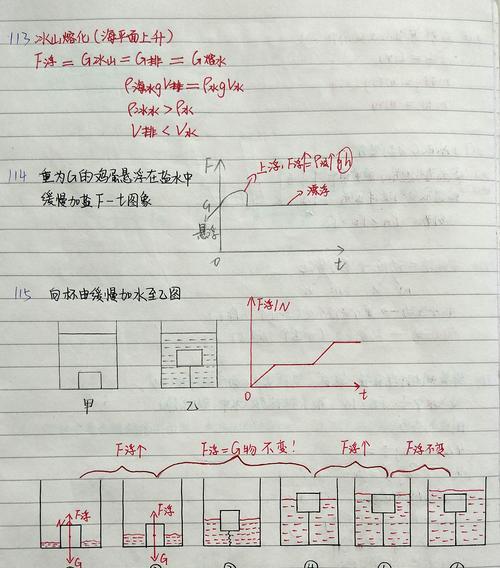 113 冰山熔化(海平面上升)
F浮 = G冰山 = G排 = G熔水
ρ海水gV排 = ρ水gV水
ρ海水 > ρ水
V排 < V水
114 重为G的鸡蛋悬浮在盐水中
缓慢加盐 F-t图象
F
上浮, F浮↑=ρ液↑gh
G
漂浮
悬浮
0
t
115 向杯中缓慢加水至乙图
F浮/N
甲
乙
0
t
F浮↑
F浮=G物 不变!
F浮↑
F浮不变
N
F浮
G
F浮
G